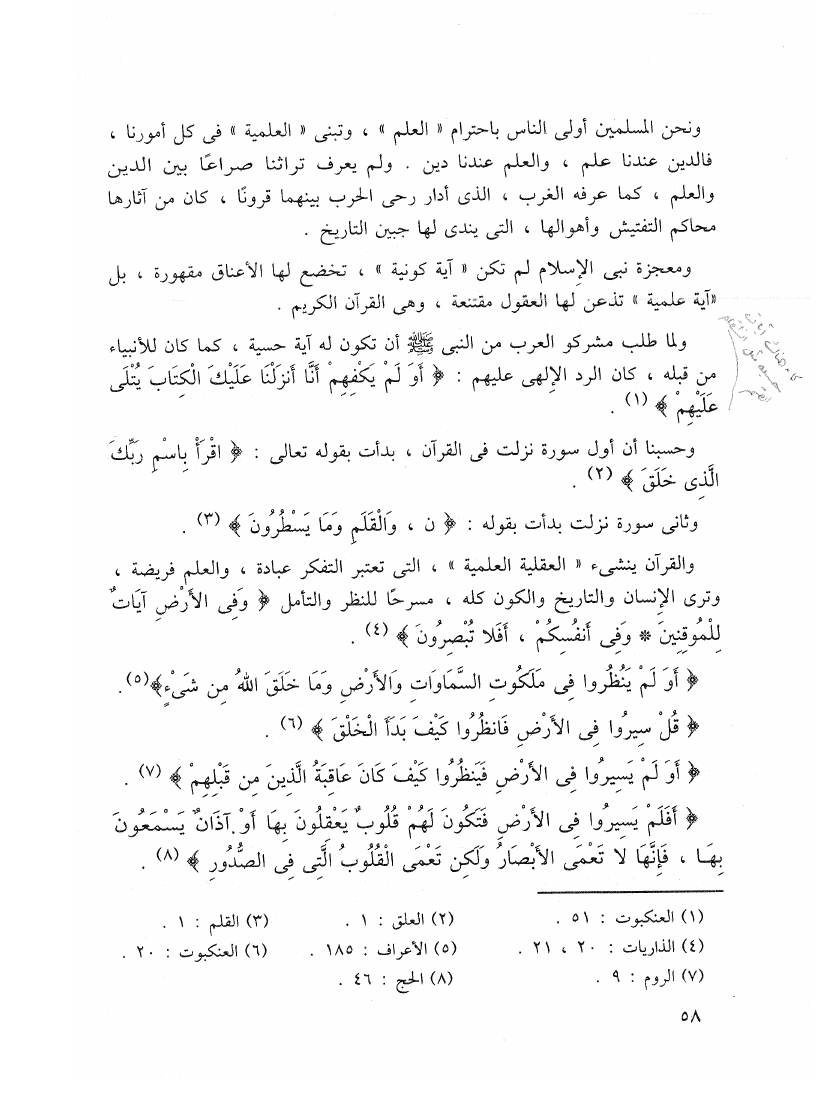 ونحن المسلمين أولى الناس باحترام « العلم » ، وتبنى « العلمية » فى كل أمورنا ،
فالدين عندنا علم ، والعلم عندنا دين . ولم يعرف تراثنا صراعًا بين الدين
والعلم ، كما عرفه الغرب ، الذى أدار رحى الحرب بينهما قرونًا ، كان من آثارها
محاكم التفتيش وأهوالها ، التى يندى لها جبين التاريخ .
ومعجزة نبى الإسلام لم تكن « آية كونية » ، تخضع لها الأعناق مقهورة ، بل
«آية علمية » تذعن لها العقول مقتنعة ، وهى القرآن الكريم .
ولما طلب مشركو العرب من النبى ﷺ أن تكون له آية حسية ، كما كان للأنبياء
من قبله ، كان الرد الإلهى عليهم : ﴿ أَوَ لَمْ يَكْفِهِمْ أَنَّا أَنزَلْنَا عَلَيْكَ الْكِتَابَ يُتْلَى
عَلَيْهِمْ ﴾ (١) .
وحسبنا أن أول سورة نزلت فى القرآن ، بدأت بقوله تعالى : ﴿ اقْرَأْ بِاسْمِ رَبِّكَ
الَّذِى خَلَقَ ﴾ (٢) .
وثانى سورة نزلت بدأت بقوله : ﴿ ن ، وَالْقَلَمِ وَمَا يَسْطُرُونَ ﴾ (٣) .
والقرآن ينشىء « العقلية العلمية » ، التى تعتبر التفكر عبادة ، والعلم فريضة ،
وترى الإنسان والتاريخ والكون كله ، مسرحًا للنظر والتأمل ﴿ وَفِى الأَرْضِ آيَاتٌ
لِلْمُوقِنِينَ * وَفِى أَنفُسِكُمْ ، أَفَلا تُبْصِرُونَ ﴾ (٤) .
﴿ أَوَ لَمْ يَنظُرُوا فِى مَلَكُوتِ السَّمَاوَاتِ وَالأَرْضِ وَمَا خَلَقَ اللهُ مِن شَىْءٍ﴾(٥).
﴿ قُلْ سِيرُوا فِى الأَرْضِ فَانظُرُوا كَيْفَ بَدَأَ الْخَلْقَ ﴾ (٦) .
﴿ أَوَ لَمْ يَسِيرُوا فِى الأَرْضِ فَيَنظُرُوا كَيْفَ كَانَ عَاقِبَةُ الَّذِينَ مِن قَبْلِهِمْ ﴾ (٧) .
﴿ أَفَلَمْ يَسِيرُوا فِى الأَرْضِ فَتَكُونَ لَهُمْ قُلُوبٌ يَعْقِلُونَ بِهَا أَوْ آذَانٌ يَسْمَعُونَ
بِهَا ، فَإِنَّهَا لا تَعْمَى الأَبْصَارُ وَلَكِن تَعْمَى الْقُلُوبُ الَّتِى فِى الصُّدُورِ ﴾ (٨) .
(١) العنكبوت : ٥١ . (٢) العلق : ١ . (٣) القلم : ١ .
(٤) الذاريات : ٢٠ ، ٢١ . (٥) الأعراف : ١٨٥ . (٦) العنكبوت : ٢٠ .
(٧) الروم : ٩ . (٨) الحج : ٤٦ .
٥٨